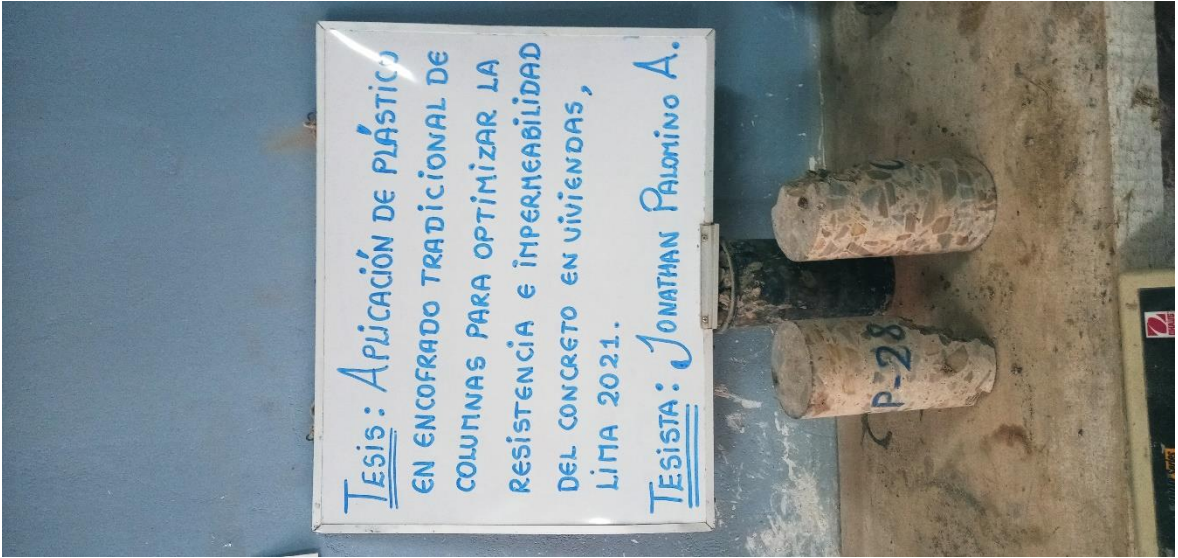 TESIS: APLICACIÓN DE PLÁSTICO
EN ENCOFRADO TRADICIONAL DE
COLUMNAS PARA OPTIMIZAR LA
RESISTENCIA E IMPERMEABILIDAD
DEL CONCRETO EN VIVIENDAS,
LIMA 2021.
TESISTA: JONATHAN PALOMINO A.
P-28